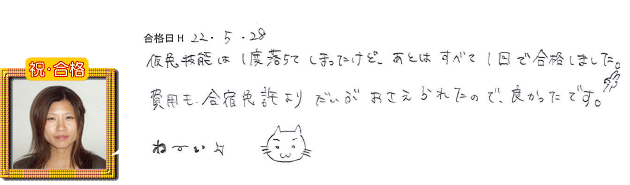 合格日 H 22.5.28
祝・合格
仮免技能は1度落ちてしまったけど、あとはすべて1回で合格しました。
費用も、合宿免許よりだいぶおさえられたので、良かったです。
わ〜い☆